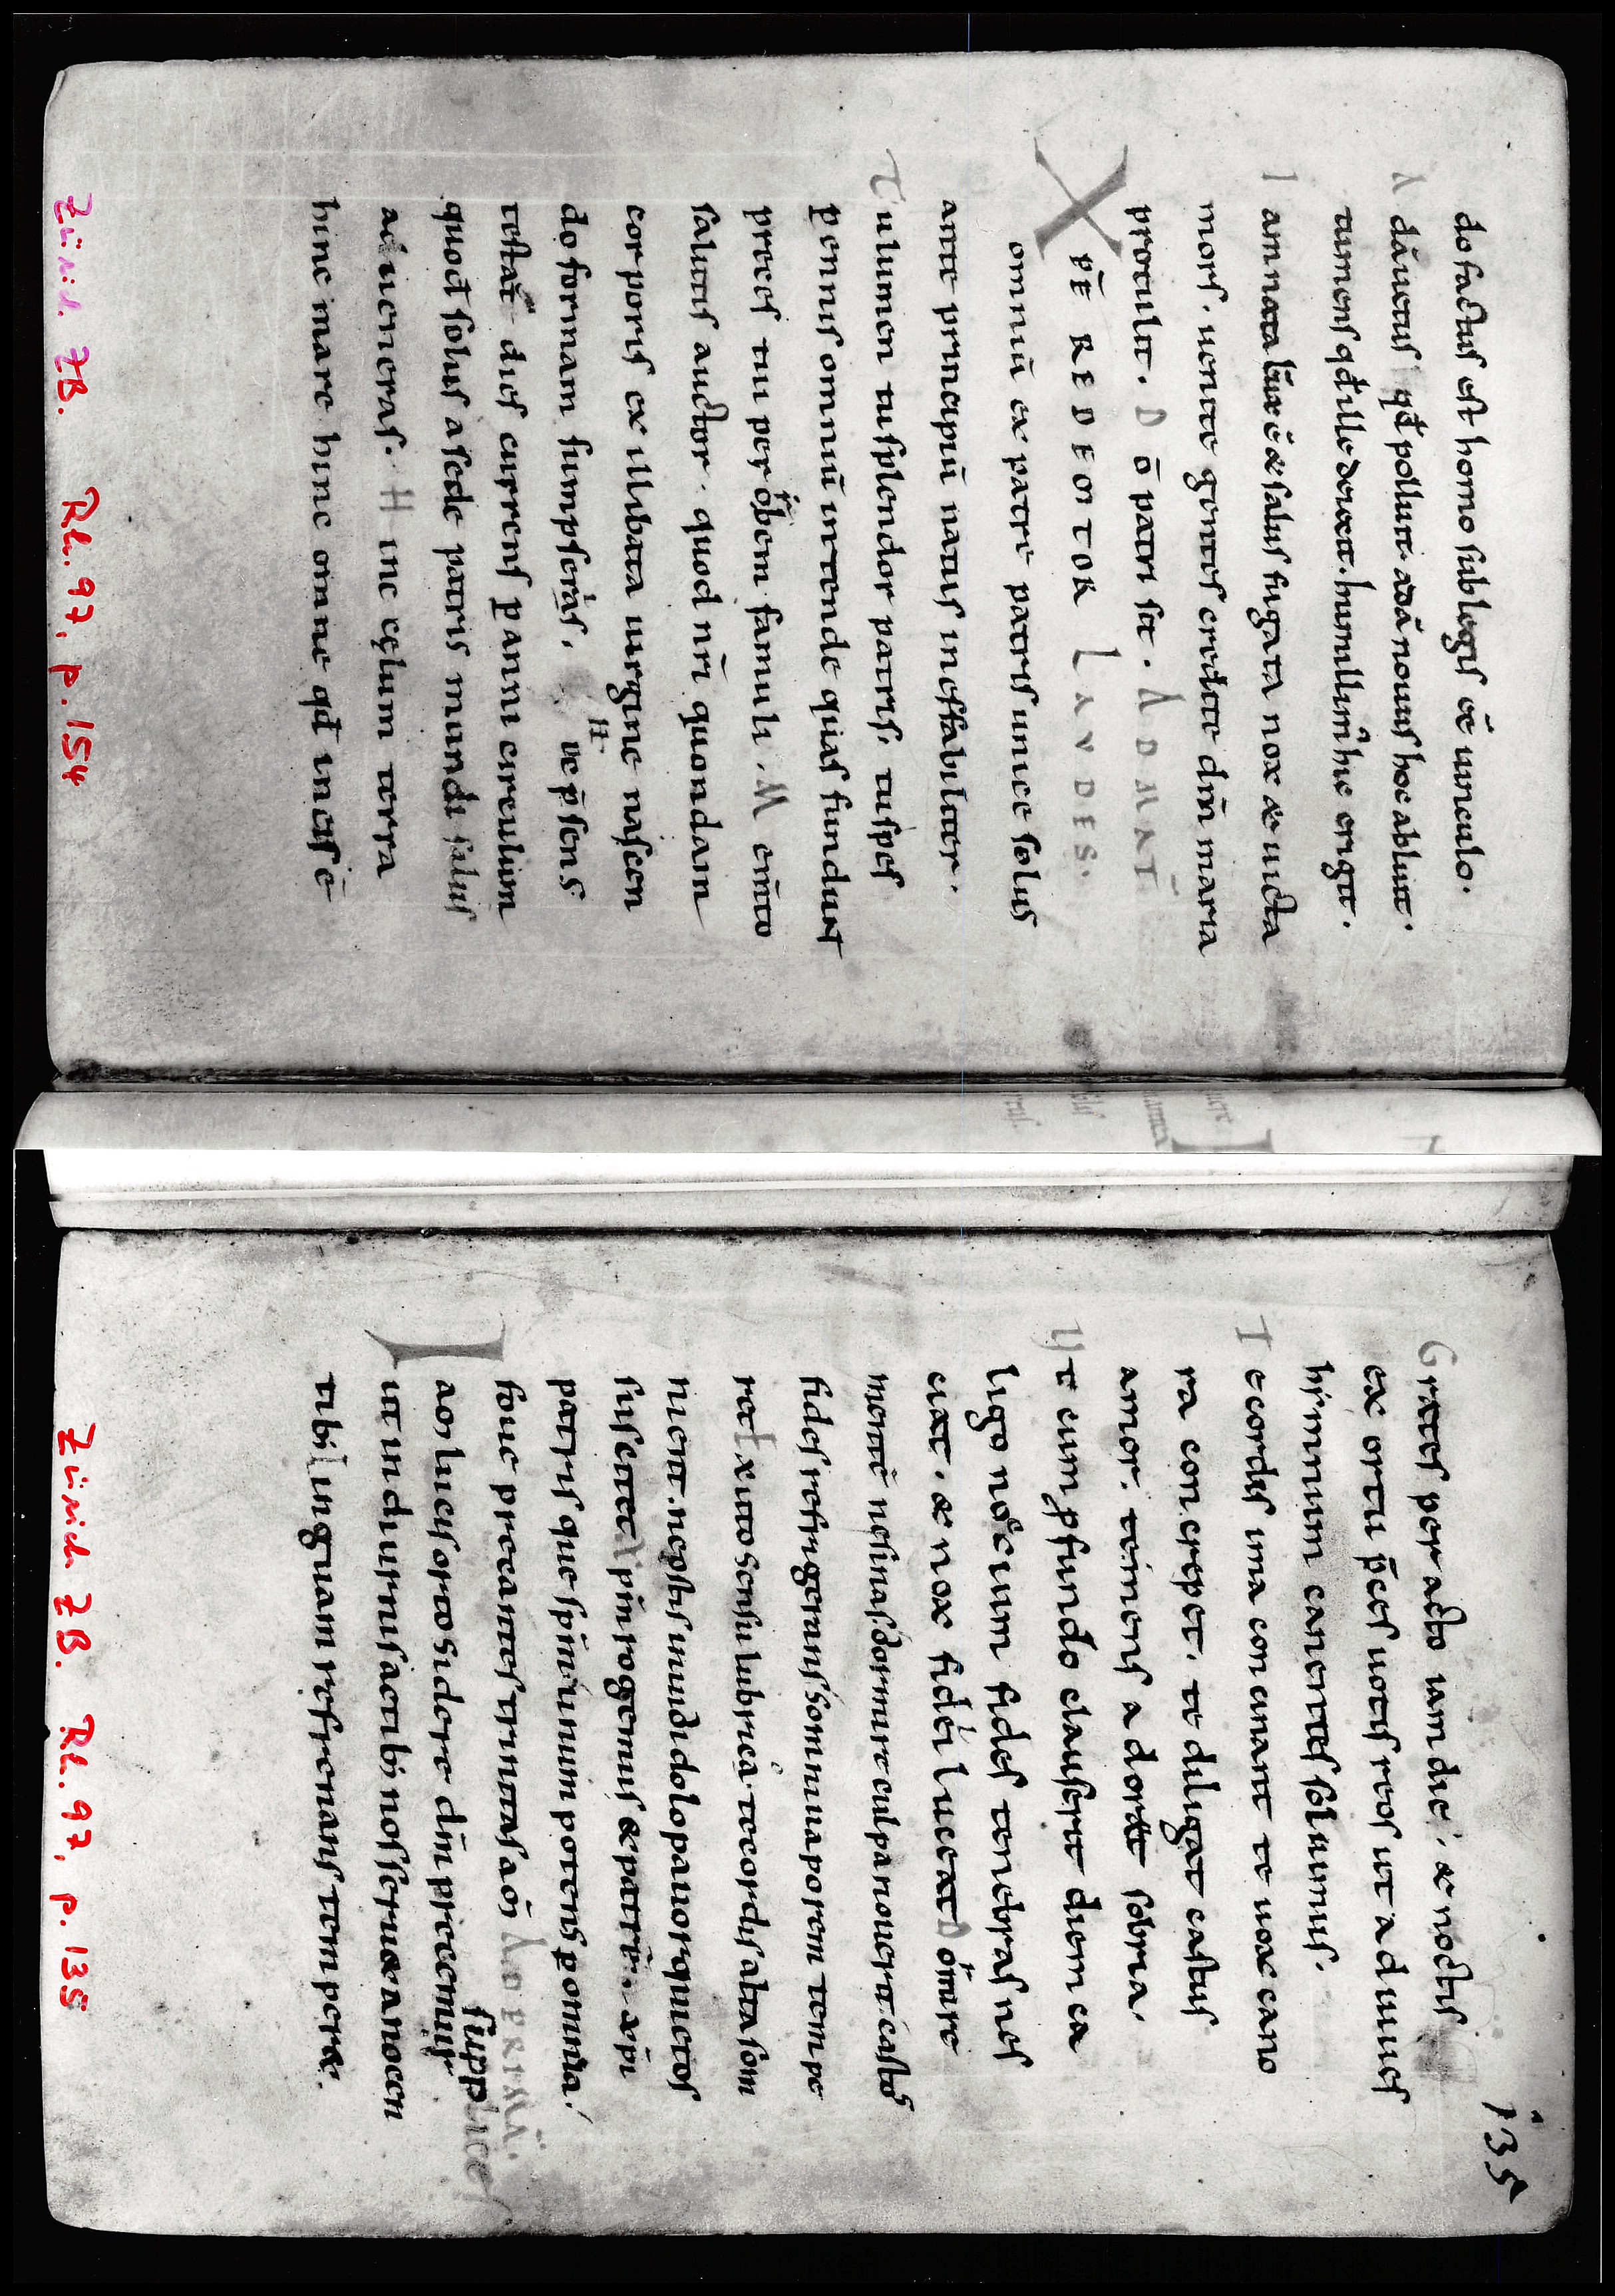 do factus est homo sub legis cē uinculo.
A dā uetus qd̄ polluit. adā nouus hoc abluit.
tumens qd̄ ille deicit. humillimꝰ hic erigit.
I am nata lux ē & salus fugata nox & uicta
mors. uenite gentes credite dm̄ maria
protulit. D ō patri sit. AD MAT̄
XPE REDEMTOR LAVDES.
omniū ex patre patris unice solus
ante principiū natus ineffabiliter.
T u lumen tu splendor patris, tu spes
ꝑennis omniū intende quas fundunt
preces tui per orbem famuli. M emto
salutis auctor. quod nr̄i quondam
corporis ex illibata uirgine nascen
do formam sumpseras. H
ic p̄sens
testat̄ dies currens ꝑ anni circulum
quod solus a sede patris mundi salus
adueneras. H inc cęlum terra
hinc mare hinc omne qd̄ in eis ē
Zürich ZB. Rh. 97, p. 154
135
G rates peracto iam die. & noctis
ex ortu p̄ces uotis reos ut adiuues
hymnum canentes soluimus.
T e cordis ima concinant te uox cano
ra concrepet. te diligat castus
amor. te mens adoret sobria.
U t cum ꝓfundo clauserit diem ca
ligo noctium fides tenebras nes
ciat. & nox fide luceat D ormire
mentē ne sinas. dormire culpa nouerit castos
fides refrigerans somni uaporem tempe
ret E xuto sensu lubrico te cordis alta som
nient. ne hostis inuidi dolo pauor quietos
suscitet X pm̄ rogemus & patrē. xp̄i
patrisque spm̄ unum potens ꝑ omnia.
foue precantes trinitas aō AD PRIMĀ.
I am lucis orto sidere dm̄ precemur supplices
ut in diurnis actibꝫ nos seruet a nocen
tibꝫ L inguam refrenans temperet.
Zürich ZB. Rh. 97, p. 135